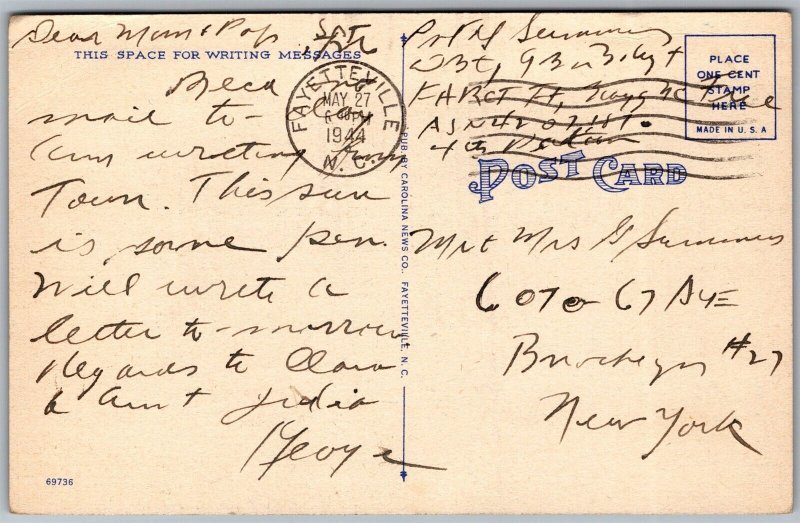 Dear Mom & Pop
THIS SPACE FOR WRITING MESSAGES
Recd
mail to-
Am writing from
Town. This sure
is some pen.
Will write a
letter to-morrow
Regards to Clara
& Aunt Julia
George
69736
FAYETTEVILLE
MAY 27
6 PM
1944
N. C.
PUB. BY CAROLINA NEWS CO., FAYETTEVILLE, N. C.
Pvt G Summers
FARCT Ft. Bragg NC Free
4th
PLACE
ONE CENT
STAMP
HERE
MADE IN U.S.A
POST CARD
Mr & Mrs G Summers
6070-67 AVE
Brooklyn #27
New York